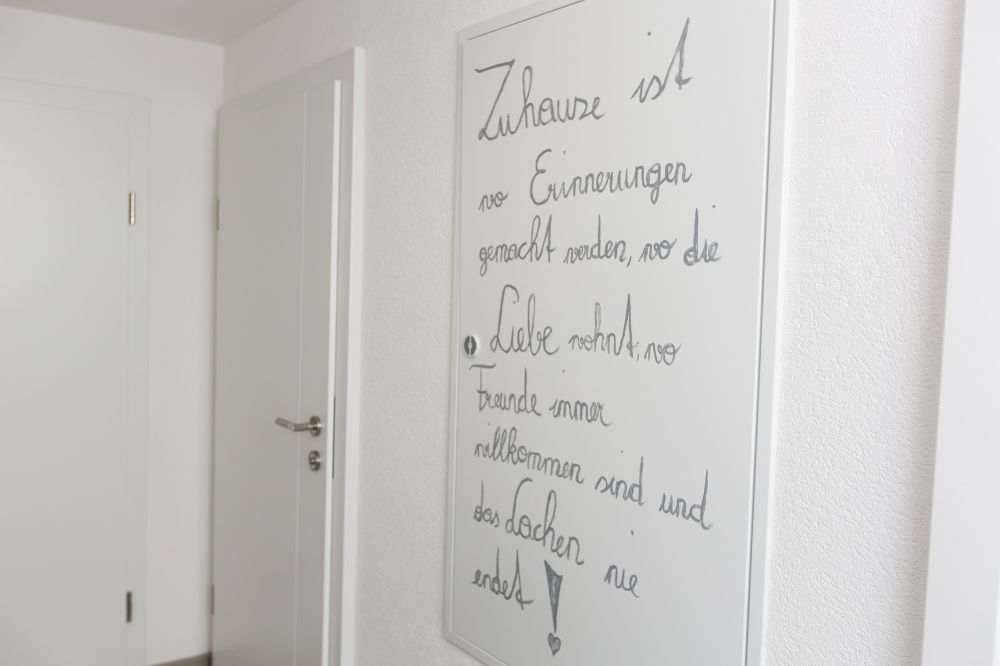 Zuhause ist
wo Erinnerungen
gemacht werden, wo die
Liebe wohnt, wo
Freunde immer
willkommen sind und
das Lachen nie
endet!